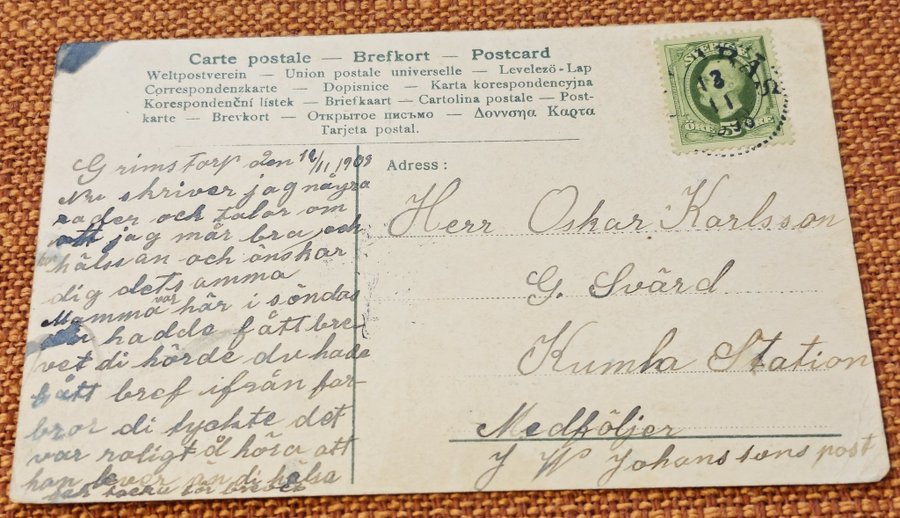 Carte postale — Brefkort — Postcard
Weltpostverein — Union postale universelle — Levelezö-Lap
Correspondenzkarte — Dopisnice — Karta korespondencyjna
Korespondenční lístek — Briefkaart — Cartolina postale — Post-
karte — Brevkort — Открытое письмо — Δоννσηα Καρτα
Tarjeta postal.
Grimstorp den 12/11 1909
Nu skriver jag några
rader och talar om
att jag mår bra och
hälsan och önskar
dig detsamma
Mamma var här i söndas
hadde fått bre-
vet di hörde du hade
fått bref ifrån far-
bror di tyckte det
var roligt å höra att
han lever än di hälsa
tack för brevet
Adress:
Herr Oskar Karlsson
G. Svärd
Kumla Station
Medföljer
J W Johanssons post
SVERIGE
ÖRE
12
11